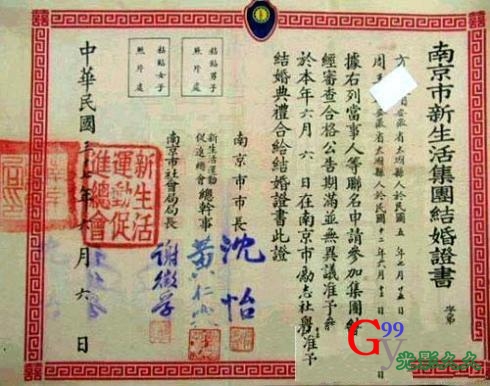 南京市新生活集團結婚證書
字第
安徽省太湖縣人於民國五年七月廿五日
周 安徽省太湖縣人於民國十二年六月十三日
據右列當事人等聯名申請參加集團結
經審查合格公告期滿並無異議准予
於本年六月六日在南京市勵志社舉
准予
結婚典禮合給結婚證書此證
南京市市長
沈怡
新生活運動促進總會
總幹事
黃仁
南京市社會局局長
謝徵孚
粘貼男子照片處
粘貼女子照片處
中華民國 年六月六日
新生活運動促進總會
G99
y
光影久久